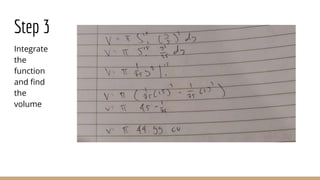 Step 3
Integrate
the
function
and find
the
volume
V = π ∫₁¹⁵ (y/5)² dy
V = π ∫₁¹⁵ y²/25 dy
V = π 1/75 y³ |₁¹⁵
V = π (1/75 (15)³ - 1/75 (1)³)
V = π 45 - 1/75
V = π 44.99 cu